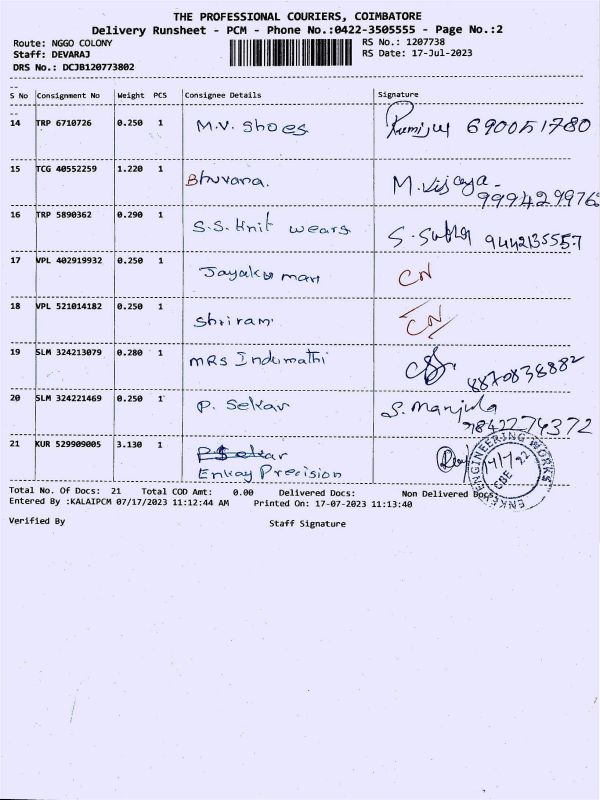 THE PROFESSIONAL COURIERS, COIMBATORE
Delivery Runsheet - PCM - Phone No.:0422-3505555 - Page No.:2
Route: NGGO COLONY RS No.: 1207738
Staff: DEVARAJ RS Date: 17-Jul-2023
DRS No.: DCJB120773802
S No Consignment No Weight PCS Consignee Details Signature
14 TRP 6710726 0.250 1 M.V. Shoes 690051780
15 TCG 40552259 1.220 1 Bhuvana. M. Vijaya - 9994299762
16 TRP 5890362 0.290 1 S.S. Knit wears S. Subha 9442135557
17 VPL 402919932 0.250 1 Jayakumar CN
18 VPL 521014182 0.250 1 Shriram CN
19 SLM 324213079 0.280 1 MRS Indumathi 8870838882
20 SLM 324221469 0.250 1 P. Sekar S. Manjula
9842274372
21 KUR 529909005 3.130 1 P Sekar
Enkay Precision
ENGINEERING WORKS
CBE 22
Total No. Of Docs: 21 Total COD Amt: 0.00 Delivered Docs: Non Delivered Docs:
Entered By :KALAIPCM 07/17/2023 11:12:44 AM Printed On: 17-07-2023 11:13:40
Verified By Staff Signature